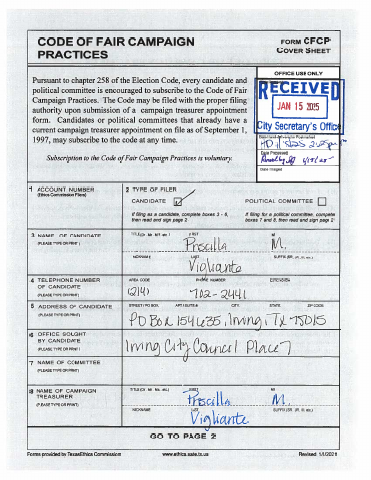 CODE OF FAIR CAMPAIGN PRACTICES
FORM CFCP
COVER SHEET
Pursuant to chapter 258 of the Election Code, every candidate and
political committee is encouraged to subscribe to the Code of Fair
Campaign Practices. The Code may be filed with the proper filing
authority upon submission of a campaign treasurer appointment
form. Candidates or political committees that already have a
current campaign treasurer appointment on file as of September 1,
1997, may subscribe to the code at any time.
Subscription to the Code of Fair Campaign Practices is voluntary.
OFFICE USE ONLY
RECEIVED
JAN 15 2025
City Secretary's Office
Date Processed
Date Imaged
1 ACCOUNT NUMBER
(Ethics Commission Filers)
2 TYPE OF FILER
CANDIDATE
POLITICAL COMMITTEE
If filing as a candidate, complete boxes 3 - 6,
then read and sign page 2.
If filing for a political committee, complete
boxes 7 and 8, then read and sign page 2.
3 NAME OF CANDIDATE
(PLEASE TYPE OR PRINT)
TITLE (Dr., Mr., Ms., etc.) FIRST MI
Priscilla M.
NICKNAME LAST SUFFIX (SR., JR., III, etc.)
Vigliante
4 TELEPHONE NUMBER
OF CANDIDATE
(PLEASE TYPE OR PRINT)
AREA CODE PHONE NUMBER EXTENSION
(214) 702-2441
5 ADDRESS OF CANDIDATE
(PLEASE TYPE OR PRINT)
STREET / PO BOX APT / SUITE # CITY STATE ZIP CODE
PO Box 154635, Irving, Tx 75015
6 OFFICE SOUGHT
BY CANDIDATE
(PLEASE TYPE OR PRINT)
Irving City Council Place 7
7 NAME OF COMMITTEE
(PLEASE TYPE OR PRINT)
8 NAME OF CAMPAIGN
TREASURER
(PLEASE TYPE OR PRINT)
TITLE (Dr., Mr., Ms., etc.) FIRST MI
Priscilla M.
NICKNAME LAST SUFFIX (SR., JR., III, etc.)
Vigliante
GO TO PAGE 2
Forms provided by Texas Ethics Commission www.ethics.state.tx.us Revised 1/1/2024